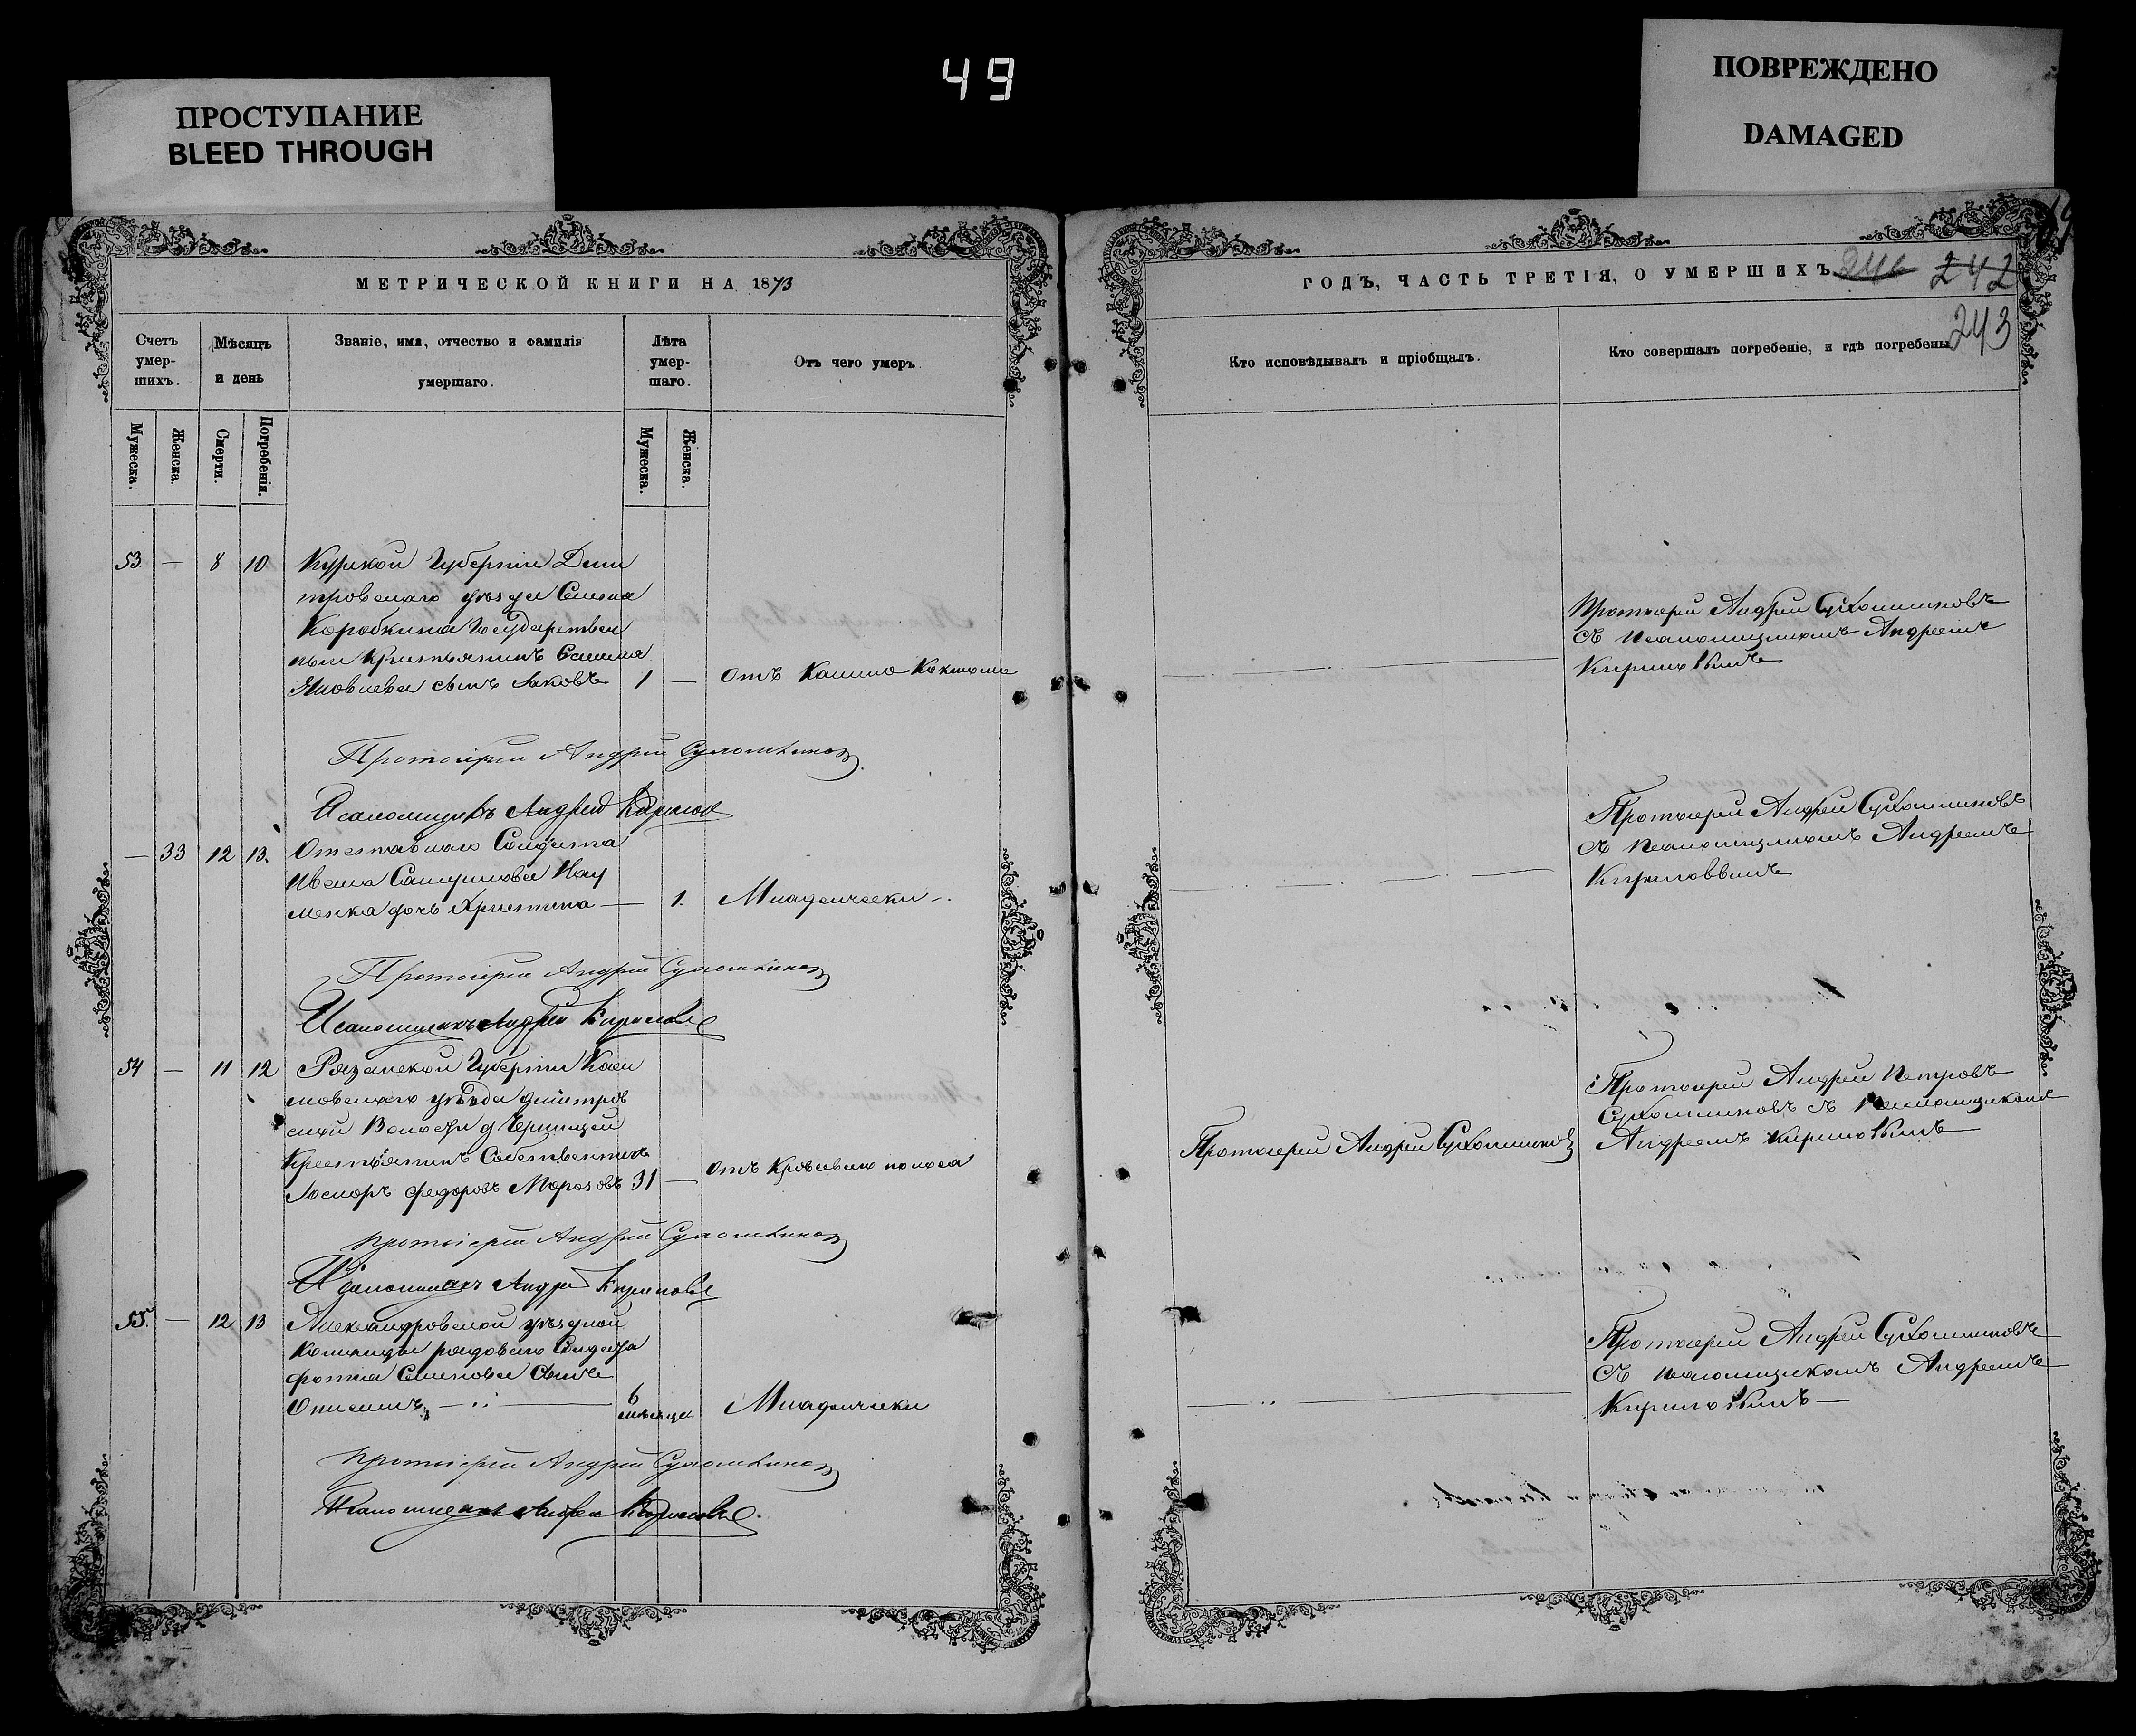 49
ПРОСТУПАНИЕ
BLEED THROUGH
ПОВРЕЖДЕНО
DAMAGED
МЕТРИЧЕСКОЙ КНИГИ НА 1873
Счетъ умершихъ.
Мѣсяцъ и день
Званіе, имя, отчество и фамилія умершаго.
Лѣта умершаго.
Отъ чего умеръ
Мужеска.
Женска.
Смерти.
Погребенія.
Мужеска.
Женска.
53 — 8 10 Курской Губерніи Дми
тровскаго уѣзда
Коробкина Государствен
Яковлева сынъ Яковъ 1 —
Протоіерей Андрей Сухомлиновъ
Псаломщикъ Андрей Кириловъ
— 33 12 13. Отставнаго Солдата
Ивана Нау
менка дочь Христина — 1. Младенчески
Протоіерей Андрей Сухомлиновъ
Псаломщикъ Андрей Кириловъ
54 — 11 12 Рязанской Губерніи Каси
мовскаго уѣзда Дмитров
ской Волости д.
Крестьянинъ Собственникъ
Федоровъ Морозовъ 31 — отъ Кроваваго поноса
Протоіерей Андрей Сухомлиновъ
Псаломщикъ Андрей Кириловъ
55. — 12 13 Александровской уѣздной
Команды рядоваго Солдата
Фотія Семенова Сынъ
Онисимъ 6 мѣсяцевъ Младенчески
Протоіерей Андрей Сухомлиновъ
Псаломщикъ Андрей Кириловъ
ГОДЪ, ЧАСТЬ ТРЕТІЯ, О УМЕРШИХЪ.
242
243
Кто исповѣдывалъ и пріобщалъ.
Кто совершалъ погребеніе, и гдѣ погребены
Протоіерей Андрей Сухомлиновъ
съ Псаломщикомъ Андреемъ
Кириловымъ
Протоіерей Андрей Сухомлиновъ
съ Псаломщикомъ Андреемъ
Кириловымъ
Протоіерей Андрей Сухомлиновъ
Протоіерей Андрей Петровъ
Сухомлиновъ съ Псаломщикомъ
Андреемъ Кириловымъ
Протоіерей Андрей Сухомлиновъ
съ Псаломщикомъ Андреемъ
Кириловымъ